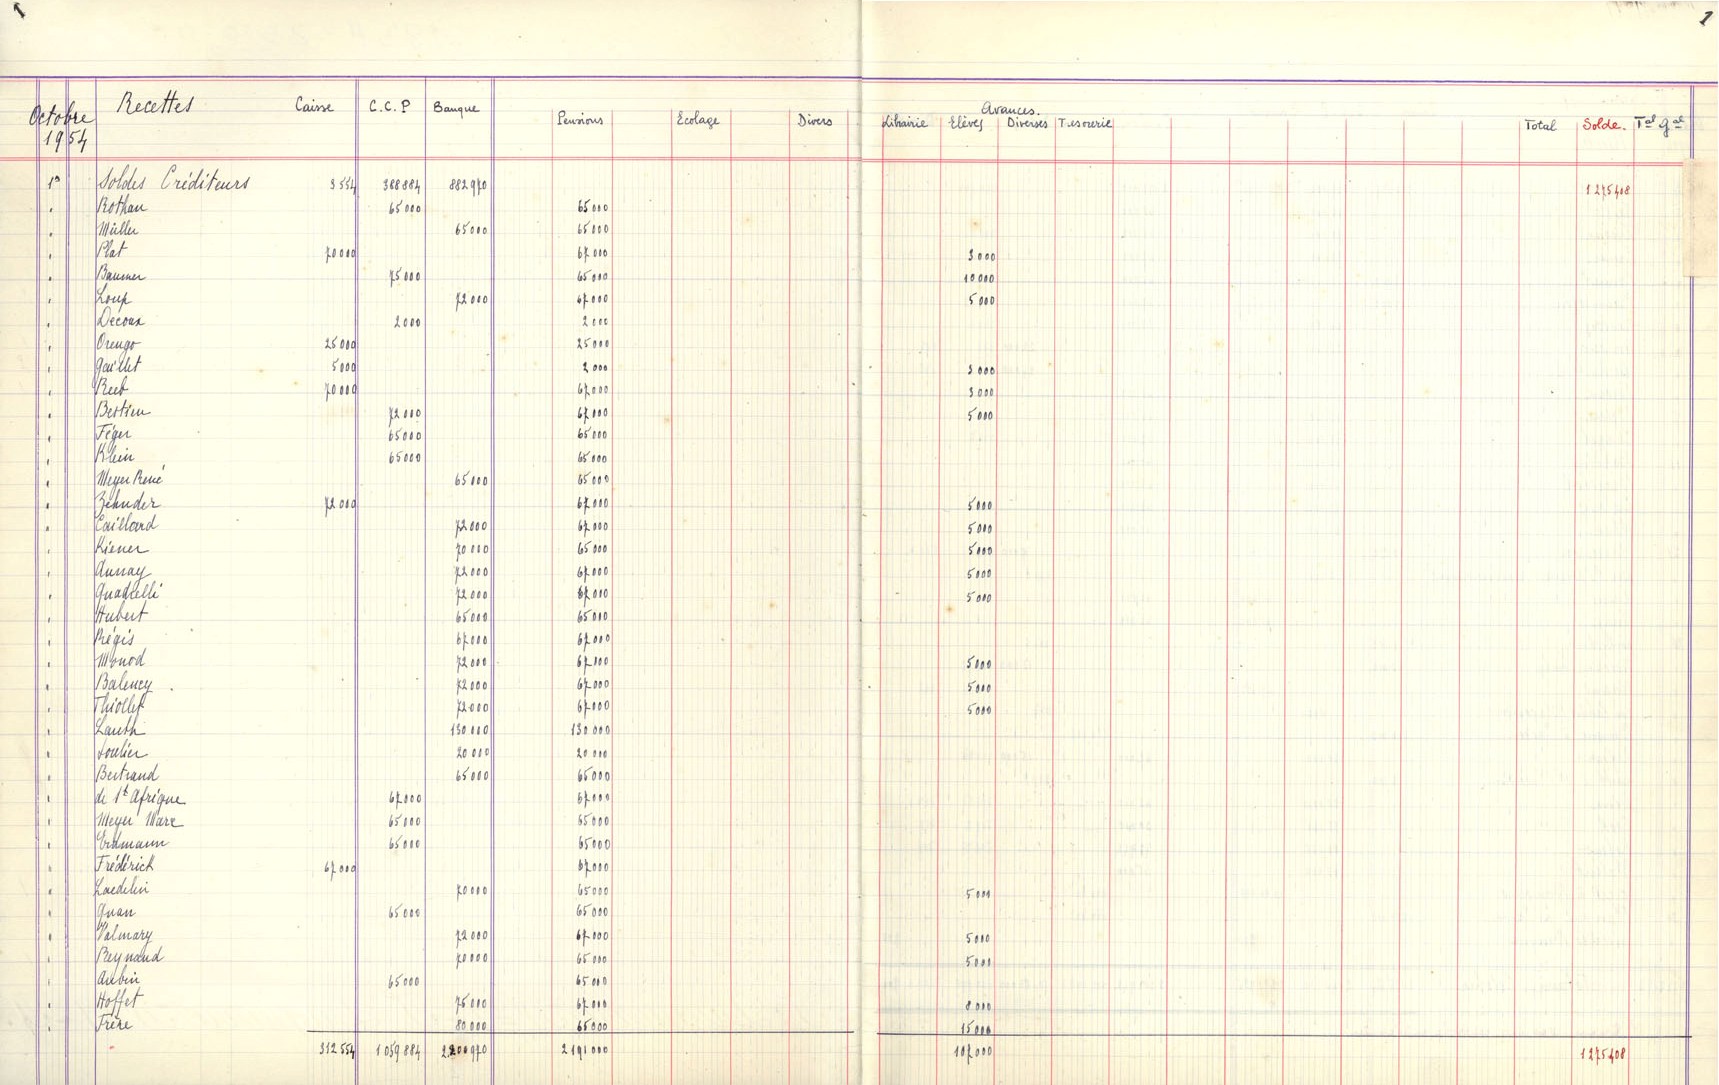 1
Octobre 1954
Recettes Caisse C.C.P Banque Pensions Ecolage Divers Librairie Avances. Elèves Diverses Tesorerie Total Solde. Tal gal
1º Soldes Créditeurs 3554 388884 882970 1275408
" Rothan 65000 65000
" Müller 65000 65000
" Plat 70000 67000 3000
" Baumer 75000 65000 10000
" Loup 72000 67000 5000
" Decoux 2000 2000
" Orengo 25000 25000
" Gaillet 5000 2000 3000
" Reeb 70000 67000 3000
" Bertieu 72000 67000 5000
" Féger 65000 65000
" Klein 65000 65000
" Meyer René 65000 65000
" Zehnder 72000 67000 5000
" Caillard 72000 67000 5000
" Kiener 70000 65000 5000
" Aunay 72000 67000 5000
" Quadrelli 72000 67000 5000
" Hubert 65000 65000
" Régis 67000 67000
" Monod 72000 67000 5000
" Balency 72000 67000 5000
" Thiollet 72000 67000 5000
" Lauth 130000 130000
" Soulier 20000 20000
" Bertrand 65000 65000
" de St Afrique 67000 67000
" Meyer Marc 65000 65000
" Erdmann 65000 65000
" Frédérick 67000 67000
" Laedelin 70000 65000 5000
" Quan 65000 65000
" Valmary 72000 67000 5000
" Reynaud 70000 65000 5000
" Aubin 65000 65000
" Hoffet 75000 67000 8000
" Frère 80000 65000 15000
312554 1059884 2200970 2191000 107000 1275408